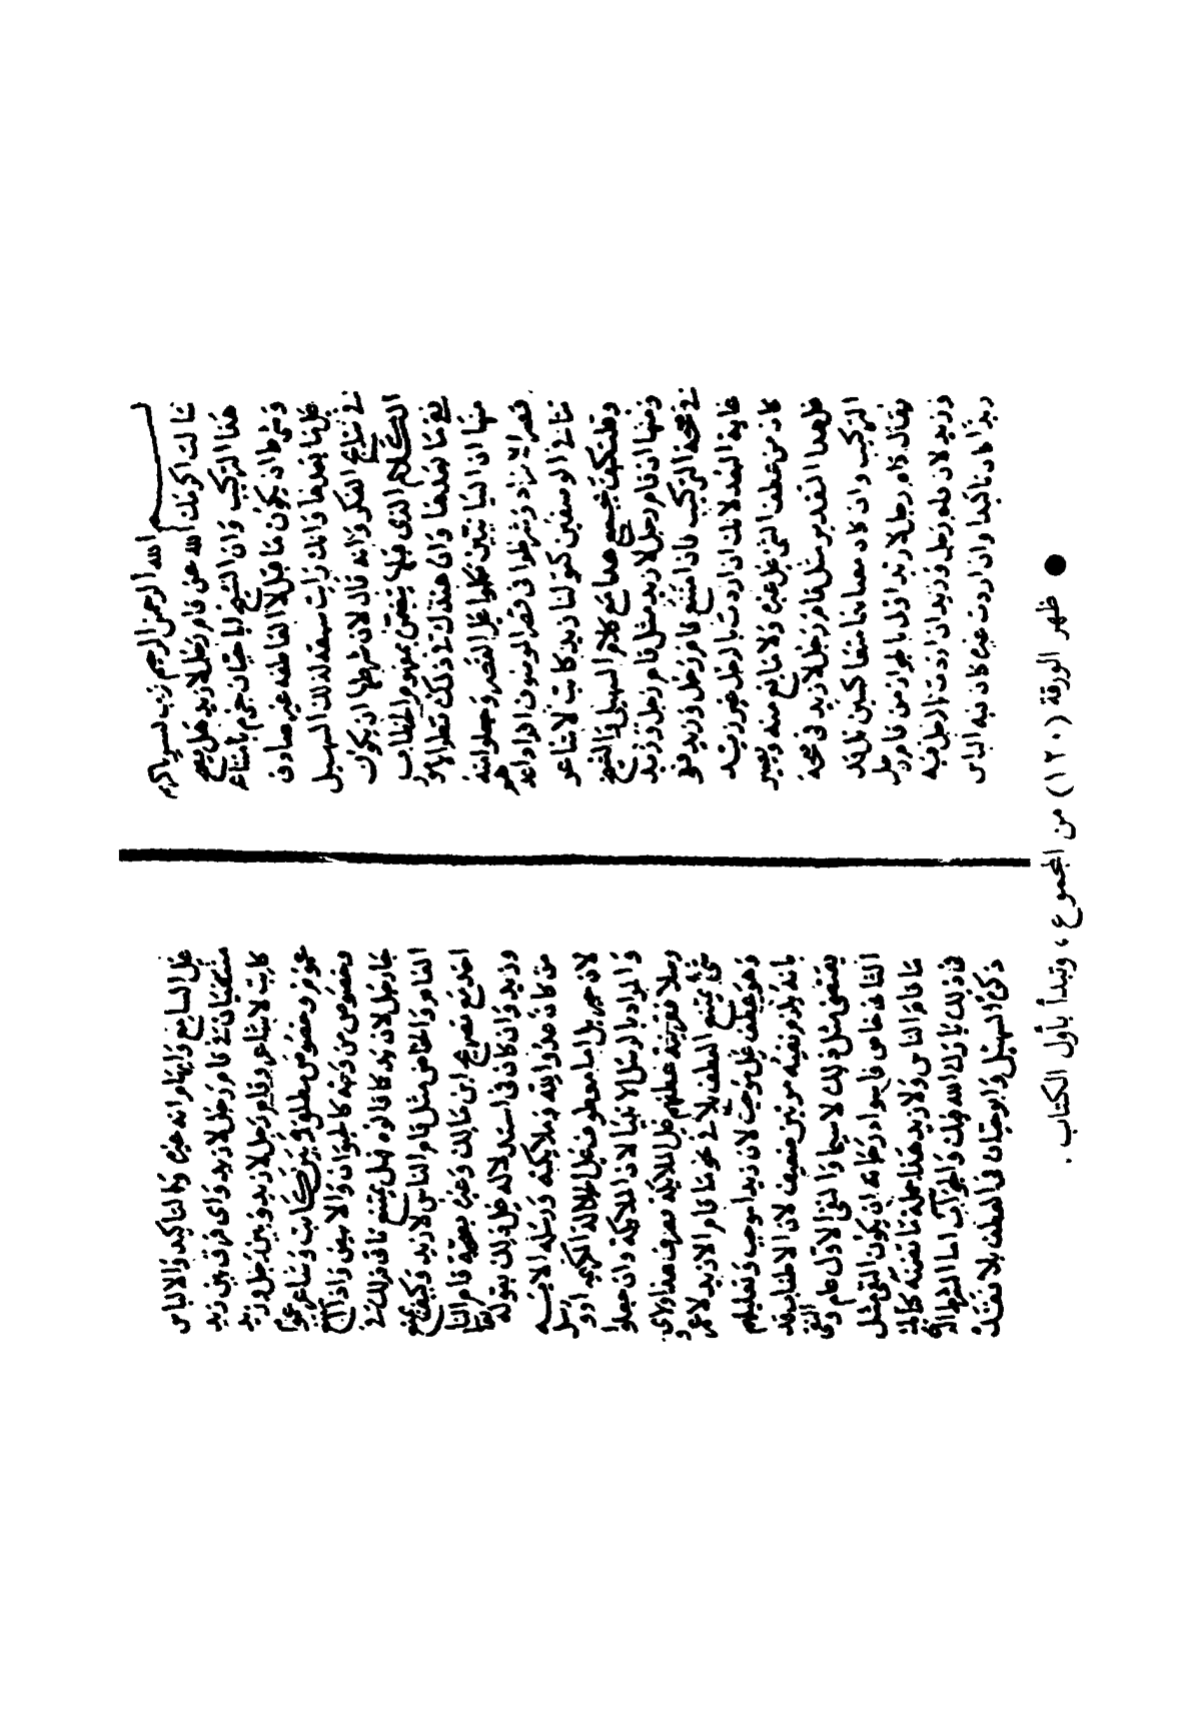 الله الرحمن الرحيم رب يسر يا كريم
سالت اكرمك الله عن قام رجل لا زيد هل يصح
هذا التركيب وان الشيخ ابا حيان جزم بامتناعه
وشرط ان يكون ما قبل لا العاطفه غير صادق
على ما بعدها وانك رايت سبقه لذلك السهيلي
في نتايج الفكر وانه قال لان شرطها ان يكون
الكلام الذي قبلها يتضمن بمفهوم الخطاب
نفي ما بعدها وان عندك في ذلك نظرا لامور
منها ان البيانيين تكلموا على القصر وجعلوا منه
قصر الافراد وشرطوا في قصر الموصوف افرادا عدم
تنافي الوصفين كقولنا زيد كاتب لا شاعر
وقلت كيف يجتمع هذا مع كلام السهيلي والشيخ
ومنها ان قام رجل لا زيد مثل قام رجل وزيد
في صحة التركيب فاذا امتنع قام رجل وزيد ففي
غاية البعد لانك ان اردت بالرجل غير زيد
كان من عطف الشي على غيره ولا مانع منه ويصير
على هذا التقدير مثل قام رجل لا زيد في صحة
التركيب وان كان معناهما متعاكسين بل قد
يقال قام رجل لا زيد اولى بالجواز من قام رجل
وزيد لان قام رجل وزيد ان اردت بالرجل فيه
زيدا كان تاكيدا وان اردت غيره كان فيه الباس
على السامع وايهام انه غيره والتاكيد والالباس
منتفيان في قام رجل لا زيد واي فرق بين زيد
كاتب لا شاعر وقام رجل لا زيد وبين رجل وزيد
عموم وخصوص مطلق وبين كاتب وشاعر عموم
وخصوص من وجه كالحيوان والابيض واذا امتنع
جا رجل لا زيد كما قالوه فهل يمتنع ذلك في
العام والخاص مثل قام الناس لا زيد وكيف يمنع
احد مع تصريح ابن مالك وغيره بصحة قام الناس
وزيد وان كان في استدلاله على ذلك بقوله تعالى
من كان عدوا لله وملايكته ورسله الاية
لان جبريل اما معطوف على الجلالة الكريمه او رسله
والمراد بالرسل الانبيا لان الملايكة وان جعلوا
رسلا فقرينة عطفهم على الملايكة تصرف هذا ولاي
شي يمتنع العطف بلا في نحو ما قام الا زيد لا عمرو
وهو عطف على موجب لان زيدا موجب وتعليلهم
بانه يلزم نفيه مرتين ضعيف لان الاطناب قد
يقتضي مثل ذلك لا سيما والنفي الاول عام والنفي
الثاني خاص فاسوا درجاته ان يكون مثل
ما قام الناس ولا زيد هذا جملة ما تضمنه كتابك
في ذلك بارك الله فيك والجواب اما الشرط الذي
ذكره السهيلي وابو حيان في العطف بلا فقد
● ظهر الورقة (١٢٠) من المجموع، وتبدأ بأول الكتاب.